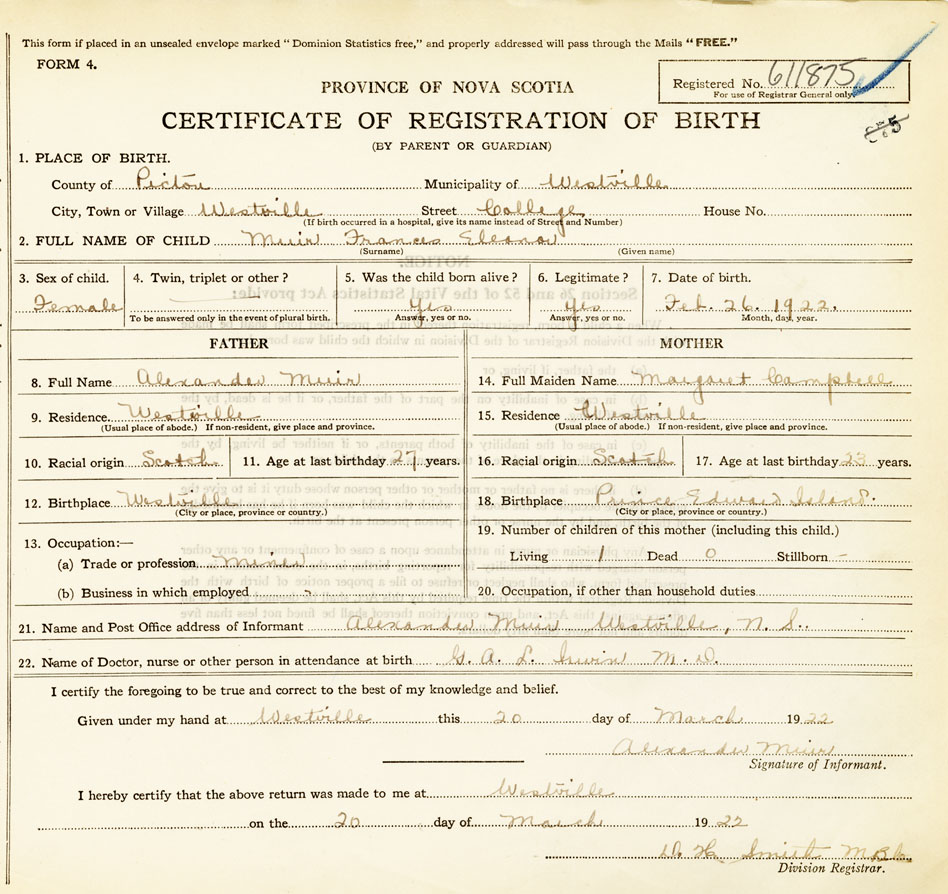 This form if placed in an unsealed envelope marked "Dominion Statistics free," and properly addressed will pass through the Mails "FREE."
FORM 4.
Registered No. 611875
For use of Registrar General only.
PROVINCE OF NOVA SCOTIA
CERTIFICATE OF REGISTRATION OF BIRTH
(BY PARENT OR GUARDIAN)
1. PLACE OF BIRTH.
County of Pictou Municipality of Westville
City, Town or Village Westville Street College House No.
(If birth occurred in a hospital, give its name instead of Street and Number)
2. FULL NAME OF CHILD Muir Frances Eleanor
(Surname) (Given name)
3. Sex of child. 4. Twin, triplet or other? 5. Was the child born alive? 6. Legitimate? 7. Date of birth.
Female — Yes Yes Feb. 26. 1922.
To be answered only in the event of plural birth. Answer, yes or no. Answer, yes or no. Month, day, year.
FATHER MOTHER
8. Full Name Alexander Muir 14. Full Maiden Name Margaret Campbell
9. Residence. Westville 15. Residence Westville
(Usual place of abode.) If non-resident, give place and province. (Usual place of abode.) If non-resident, give place and province.
10. Racial origin Scotch 11. Age at last birthday 27 years. 16. Racial origin Scotch 17. Age at last birthday 23 years.
12. Birthplace Westville 18. Birthplace Prince Edward Island.
(City or place, province or country.) (City or place, province or country.)
13. Occupation:— 19. Number of children of this mother (including this child.)
(a) Trade or profession Miner Living 1 Dead 0 Stillborn -
(b) Business in which employed 20. Occupation, if other than household duties
21. Name and Post Office address of Informant Alexander Muir Westville, N. S.
22. Name of Doctor, nurse or other person in attendance at birth G. A. L. Irwin M. D.
I certify the foregoing to be true and correct to the best of my knowledge and belief.
Given under my hand at Westville this 20 day of March 1922
Alexander Muir
Signature of Informant.
I hereby certify that the above return was made to me at Westville
on the 20 day of March 1922
D. H. Smith
Division Registrar.